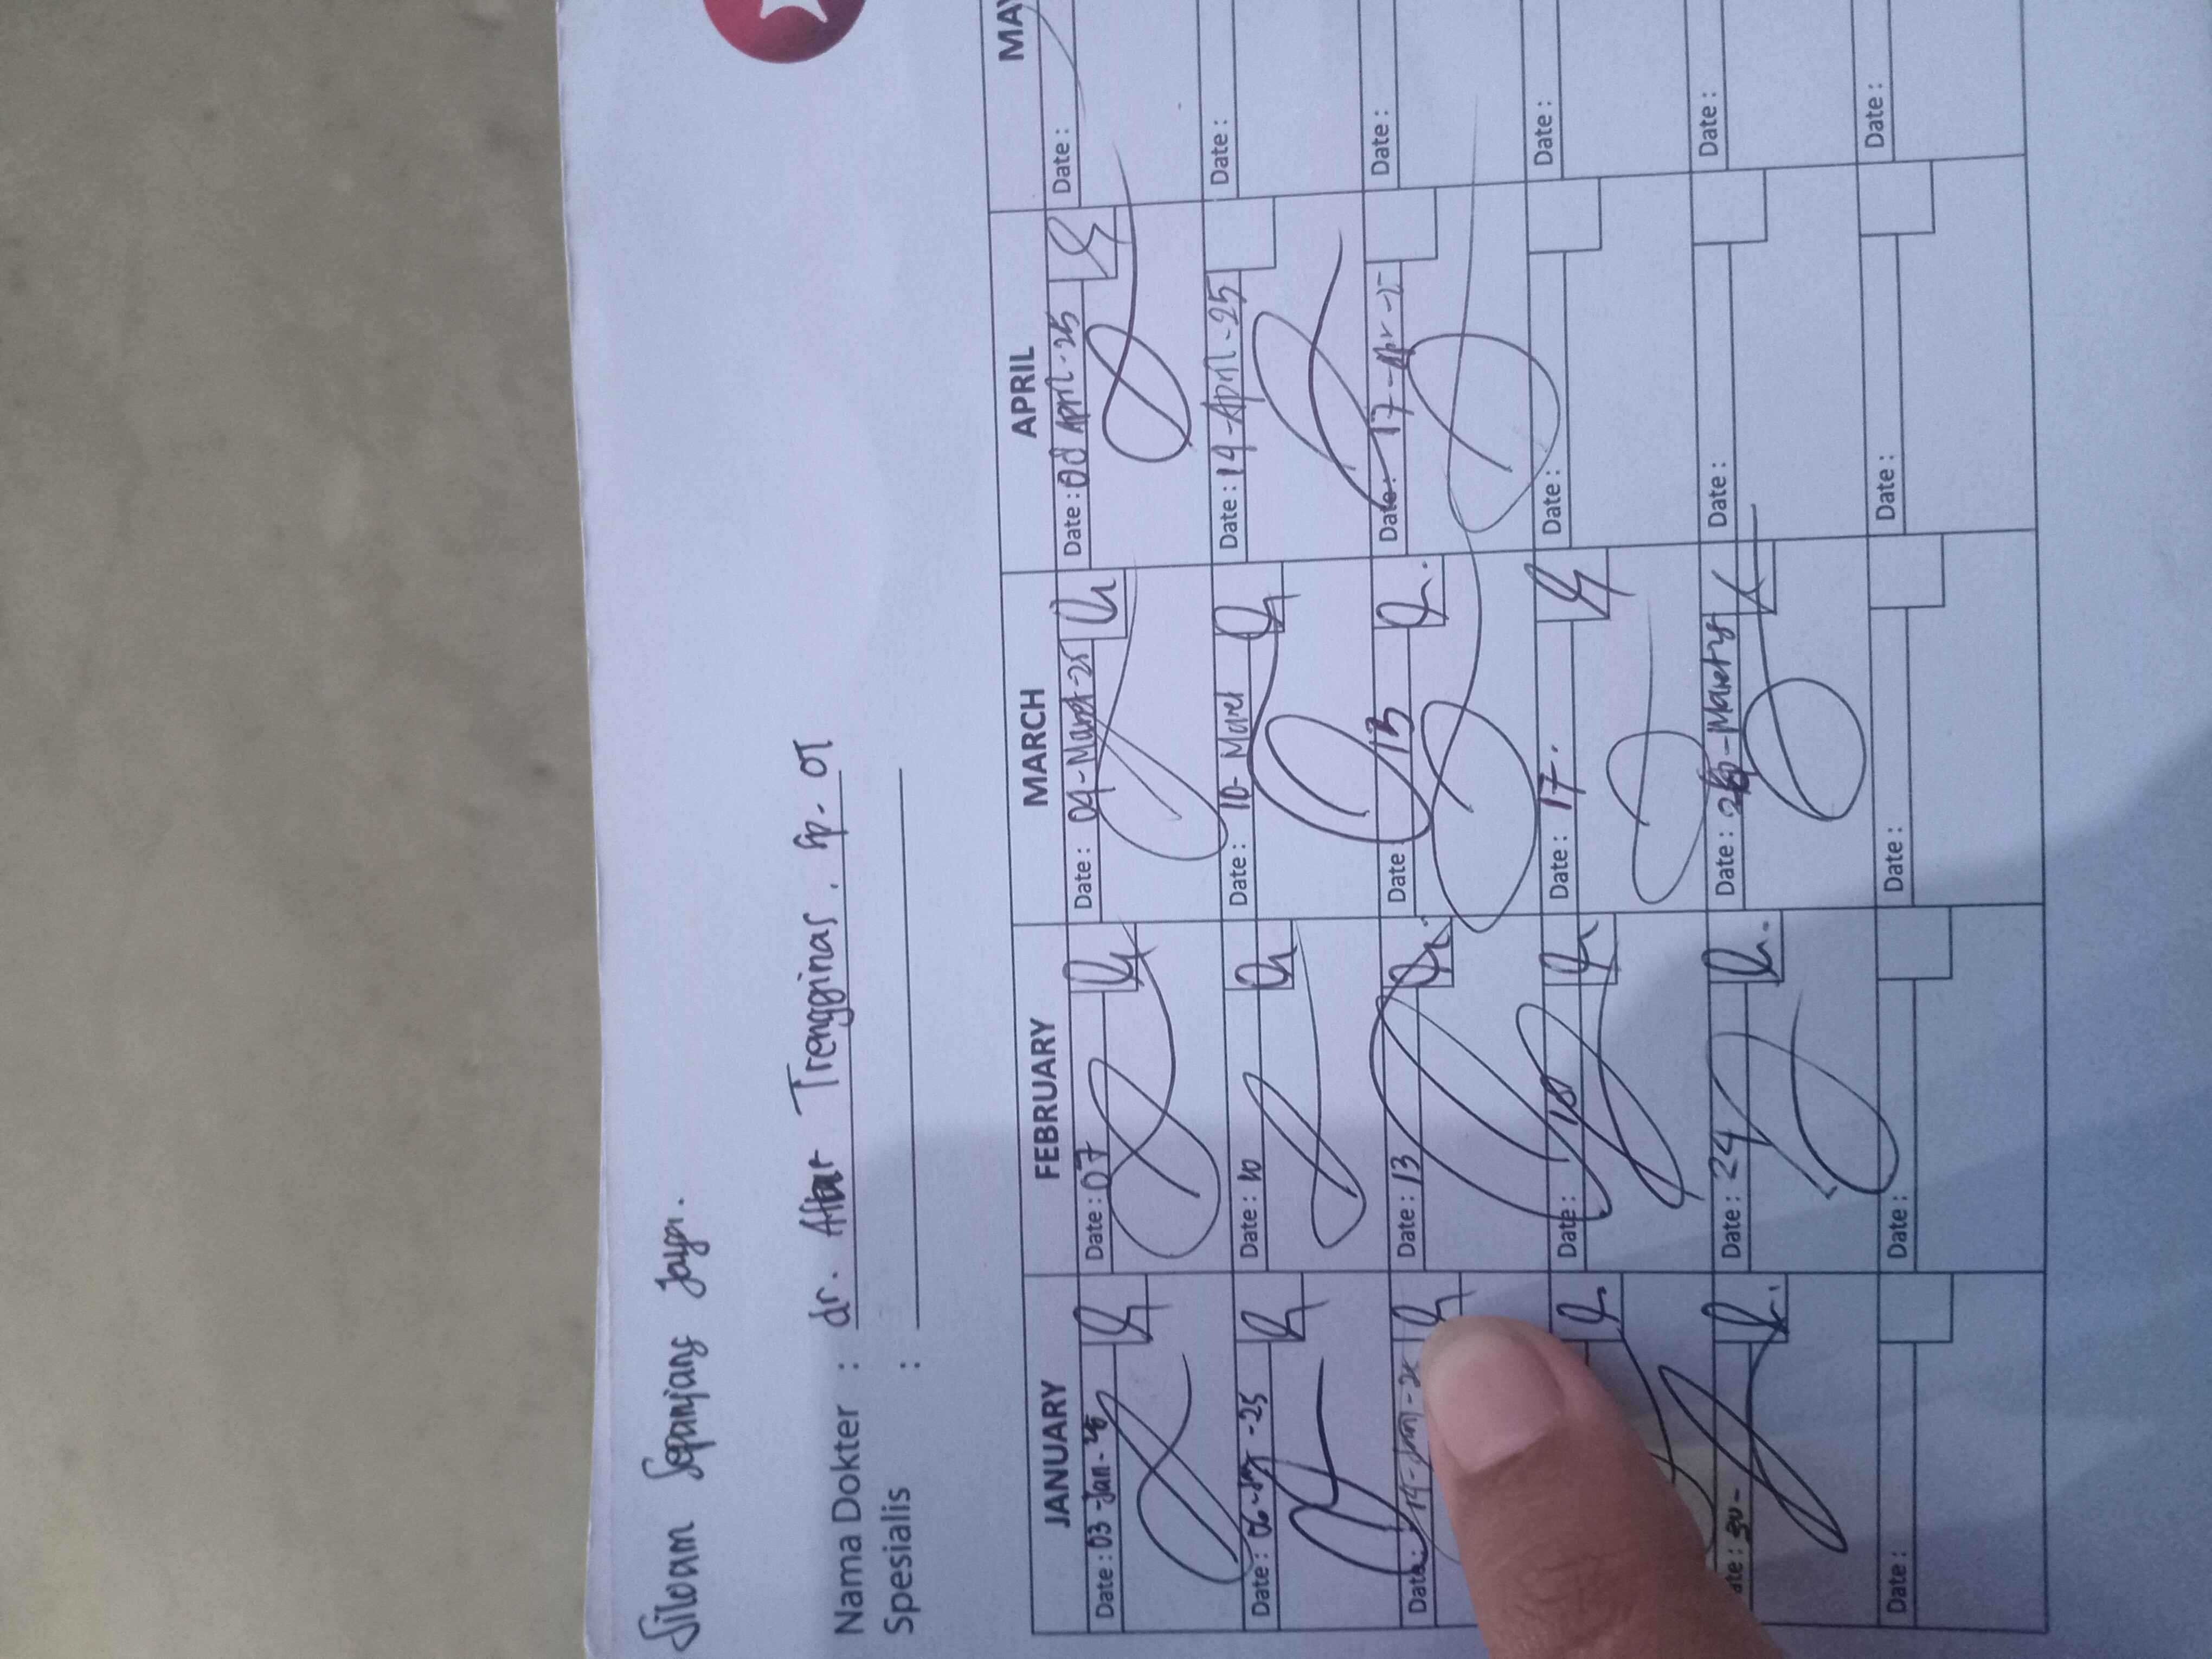 Siloam Sepanjang Jaya.
Nama Dokter : dr. Attar Trengginas. Sp. OT
Spesialis :
JANUARY FEBRUARY MARCH APRIL MAY
Date : 03-Jan-25 Date : 07 Date : 04-Maret-25 Date : April-25 Date :
Date : 06-Jan-25 Date : 10 Date : 10-Maret Date : 14-April-25 Date :
Date : 14-Jan- Date : 13 Date 13 Date : 17-Apr- Date :
Date : 18 Date : 17. Date : Date :
ate : 30- Date : 24 Date : Date : Date :
Date : Date : Date : Date : Date :